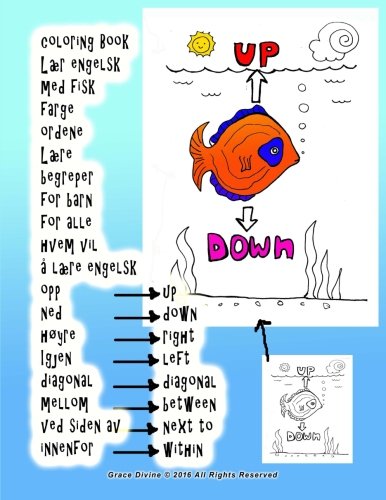 coloring Book
Lær engelsk
Med Fisk
Farge
ordene
Lære
begreper
For barn
For alle
Hvem vil
å lære engelsk
opp
up
ned
down
Høyre
right
Igjen
Left
diagonal
diagonal
Mellom
between
ved siden av
Next to
innenfor
within
UP
DOWN
UP
DOWN
Grace Divine © 2016 All Rights Reserved